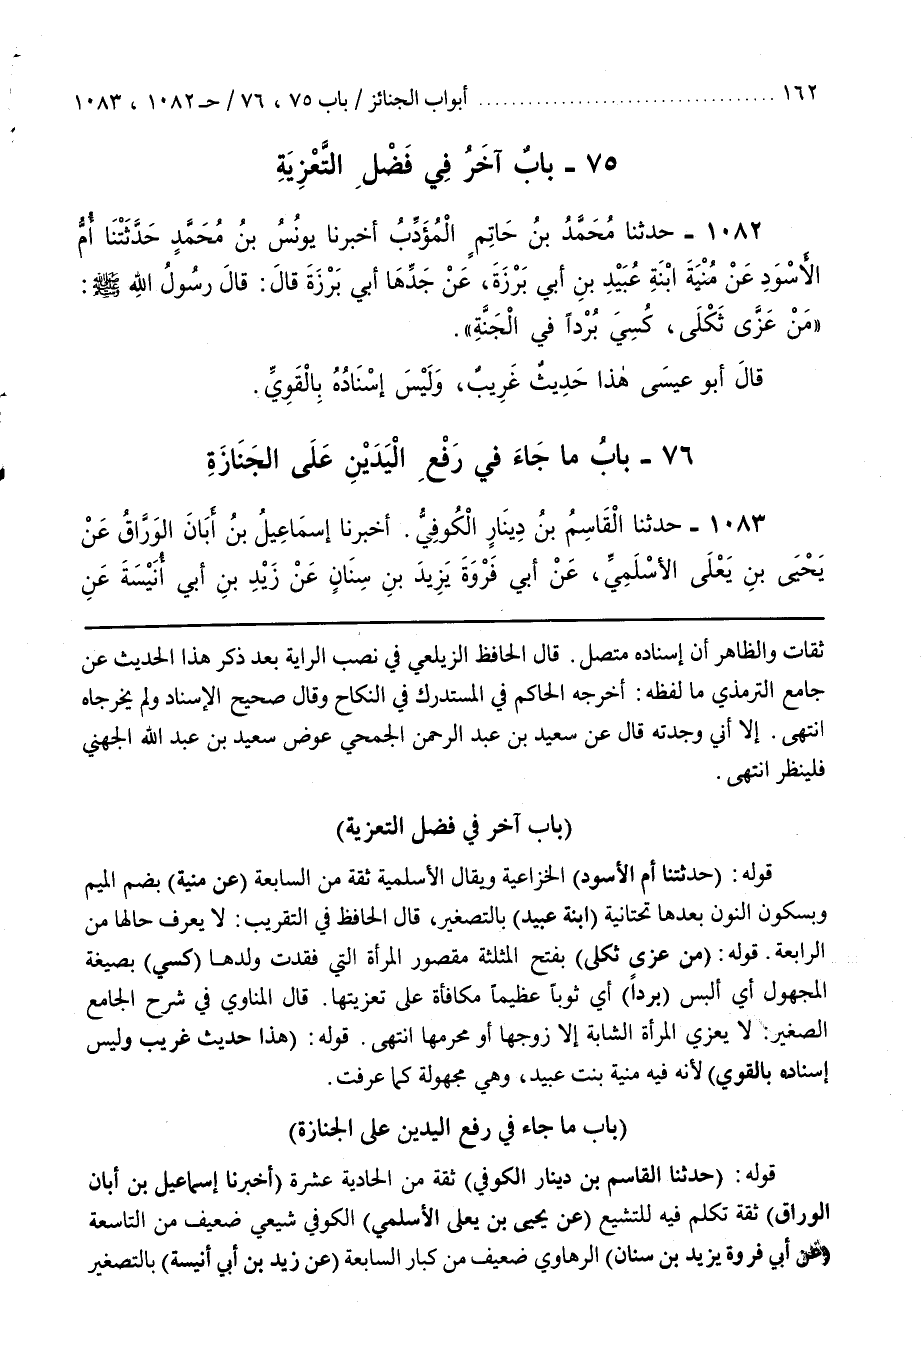 ١٦٢ ................................... أبواب الجنائز / باب ٧٥ ، ٧٦ / حـ ١٠٨٢ ، ١٠٨٣
٧٥ - بابٌ آخَرُ فِي فَضْلِ التَّعْزِيَةِ
١٠٨٢ - حدثنا مُحَمَّدُ بنُ حَاتِمٍ الْمُؤَدِّبُ أخبرنا يونُسُ بنُ مُحَمَّدٍ حَدَّثَتْنَا أُمُّ
الأَسْوَدِ عَنْ مُنْيَةَ ابْنَةِ عُبَيْدِ بنِ أبي بَرْزَةَ، عَنْ جَدِّهَا أبي بَرْزَةَ قالَ: قالَ رسولُ اللهِ ﷺ:
«مَنْ عَزَّى ثَكْلَى، كُسِيَ بُرْداً في الْجَنَّةِ».
قالَ أبو عيسَى هٰذا حَدِيثٌ غَرِيبٌ، وَلَيْسَ إسْنَادُهُ بِالْقَوِيِّ.
٧٦ - بابُ ما جَاءَ في رَفْعِ الْيَدَيْنِ عَلَى الجَنَازَةِ
١٠٨٣ - حدثنا الْقَاسِمُ بنُ دِينَارٍ الْكُوفِيُّ. أخبرنا إسمَاعِيلُ بنُ أَبَانَ الوَرَّاقُ عَنْ
يَحْيَى بنِ يَعْلَى الأسْلَمِيِّ، عَنْ أبي فَرْوَةَ يَزِيدَ بنِ سِنَانٍ عَنْ زَيْدِ بنِ أبي أُنَيْسَةَ عَنِ
ثقات والظاهر أن إسناده متصل. قال الحافظ الزيلعي في نصب الراية بعد ذكر هذا الحديث عن
جامع الترمذي ما لفظه: أخرجه الحاكم في المستدرك في النكاح وقال صحيح الإسناد ولم يخرجاه
انتهى. إلا أني وجدته قال عن سعيد بن عبد الرحمن الجمحي عوض سعيد بن عبد الله الجهني
فلينظر انتهى.
(باب آخر في فضل التعزية)
قوله: (حدثتنا أم الأسود) الخزاعية ويقال الأسلمية ثقة من السابعة (عن منية) بضم الميم
وبسكون النون بعدها تحتانية (ابنة عبيد) بالتصغير، قال الحافظ في التقريب: لا يعرف حالها من
الرابعة. قوله: (من عزى ثكلى) بفتح المثلثة مقصور المرأة التي فقدت ولدها (كسي) بصيغة
المجهول أي ألبس (برداً) أي ثوباً عظيماً مكافأة على تعزيتها. قال المناوي في شرح الجامع
الصغير: لا يعزي المرأة الشابة إلا زوجها أو محرمها انتهى. قوله: (هذا حديث غريب وليس
إسناده بالقوي) لأنه فيه منية بنت عبيد، وهي مجهولة كما عرفت.
(باب ما جاء في رفع اليدين على الجنازة)
قوله: (حدثنا القاسم بن دينار الكوفي) ثقة من الحادية عشرة (أخبرنا إسماعيل بن أبان
الوراق) ثقة تكلم فيه للتشيع (عن يحيى بن يعلى الأسلمي) الكوفي شيعي ضعيف من التاسعة
(عن أبي فروة يزيد بن سنان) الرهاوي ضعيف من كبار السابعة (عن زيد بن أبي أنيسة) بالتصغير